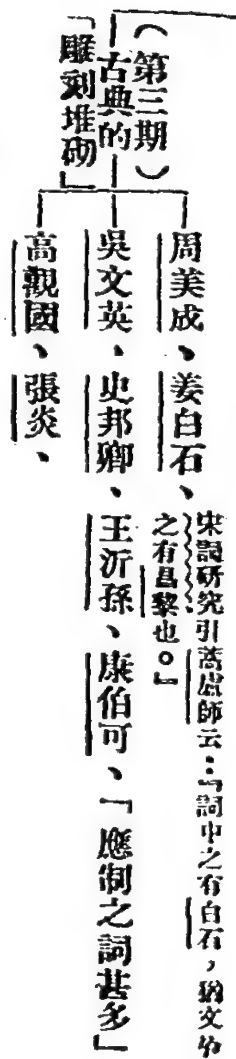 (第三期)
古典的
「雕刻堆砌」
周美成、姜白石、
宋詞研究引蒿廬師云:「詞中之有白石,猶文中
之有昌黎也。」
吳文英、史邦卿、王沂孫、康伯可、「應制之詞甚多」
高觀國、張炎、